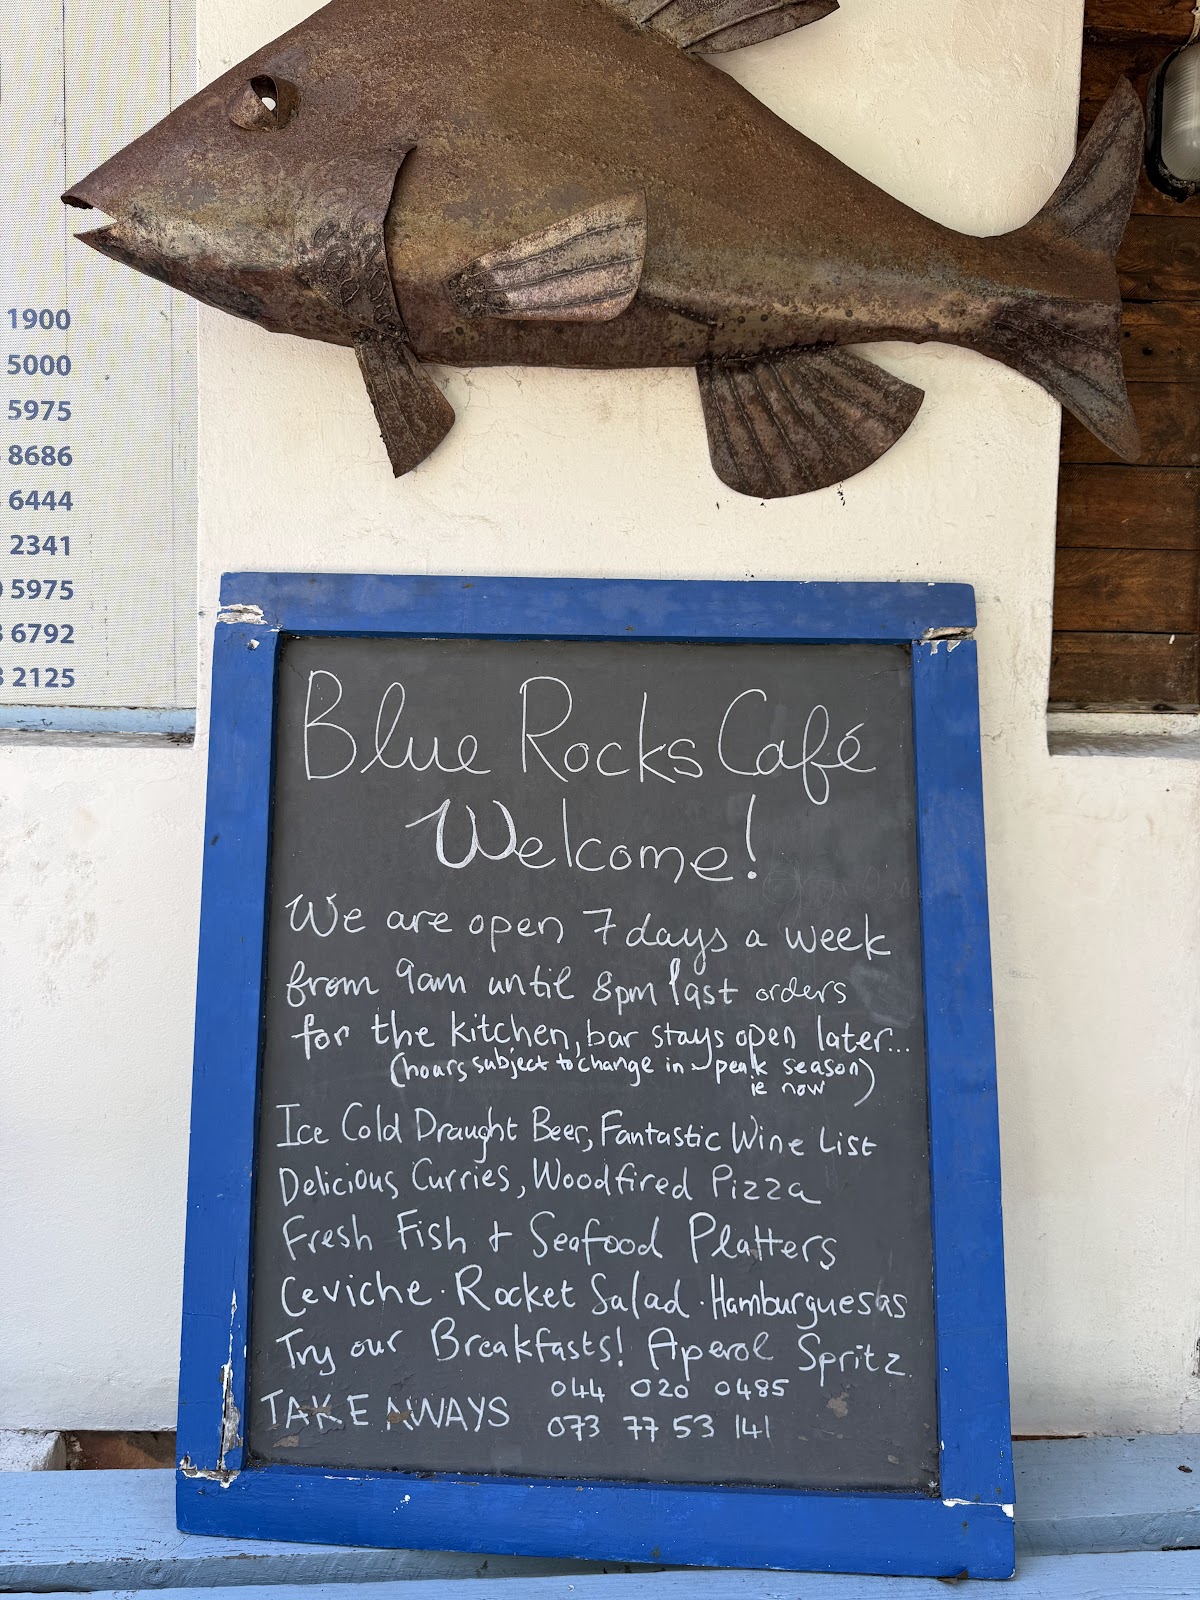 1900
5000
5975
8686
6444
2341
5975
6792
2125
Blue Rocks Café
Welcome!
We are open 7 days a week
from 9am until 8pm last orders
for the kitchen, bar stays open later...
(hours subject to change in peak season)
ie now
Ice Cold Draught Beer, Fantastic Wine List
Delicious Curries, Woodfired Pizza
Fresh Fish + Seafood Platters
Ceviche · Rocket Salad · Hamburguesas
Try our Breakfasts! Aperol Spritz.
TAKE AWAYS
044 020 0485
073 77 53 141